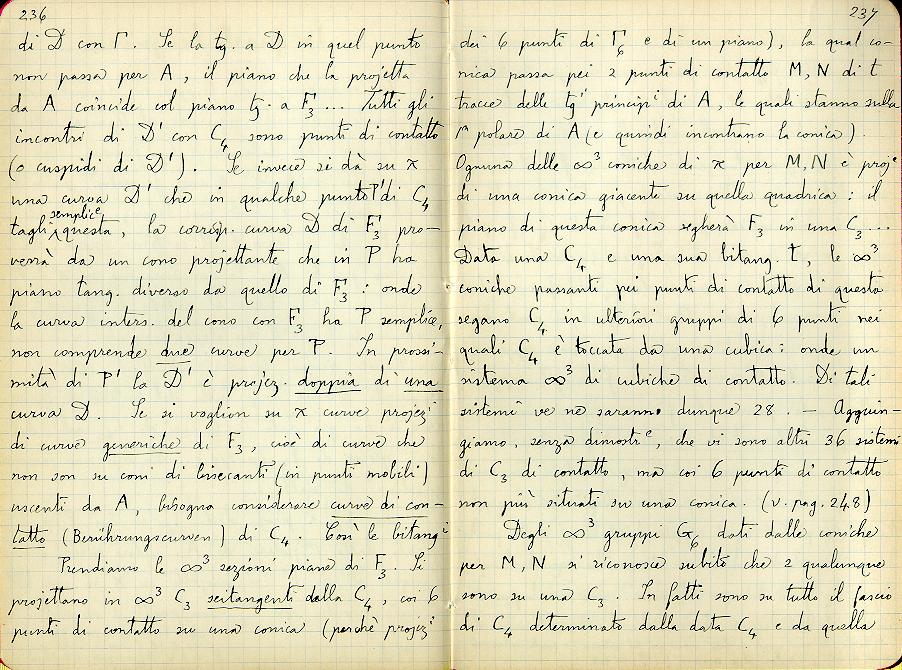 236
di D con Γ. Se la tg. a D in quel punto
non passa per A, il piano che la projetta
da A coincide col piano tg. a F₃... Tutti gli
incontri di D' con C₄ sono punti di contatto
(o cuspidi di D'). Se invece si dà su π
una curva D' che in qualche punto P' di C₄
tagli semplicᵉ questa, la corrisp. curva D di F₃ pro-
verrà da un cono projettante che in P ha
piano tang. diverso da quello di F₃: onde
la curva inters. del cono con F₃ ha P semplice,
non comprende due curve per P. In prossi-
mità di P' la D' è projez. doppia di una
curva D. Se si voglion su π curve projezⁱ
di curve generiche di F₃, cioè di curve che
non son su coni di bisecanti (in punti mobili)
uscenti da A, bisogna considerare curve di con-
tatto (Berührungscurven) di C₄. Così le bitangⁱ
Prendiamo le ∞³ sezioni piane di F₃. Si
projettano in ∞³ C₃ seitangenti della C₄, coi 6
punti di contatto su una conica (perchè projezⁱ
237
dei 6 punti di Γ₆ e di un piano), la qual co-
nica passa pei 2 punti di contatto M, N di t
tracce delle tgⁱ principⁱ di A, le quali stanno sulla
1ᵃ polare di A (e quindi incontrano la conica).
Ognuna delle ∞³ coniche di π per M, N è projᵉ
di una conica giacente su quella quadrica: il
piano di questa conica segherà F₃ in una C₃...
Data una C₄ e una sua bitang. t, le ∞³
coniche passanti pei punti di contatto di questa
segano C₄ in ulteriori gruppi di 6 punti nei
quali C₄ è toccata da una cubica: onde un
sistema ∞³ di cubiche di contatto. Di tali
sistemi ve ne saranno dunque 28. — Aggiun-
giamo, senza dimostrᵉ, che vi sono altri 36 sistemi
di C₃ di contatto, ma coi 6 punti di contatto
non più situati su una conica. (v. pag. 248)
Degli ∞³ gruppi G₆ dati dalle coniche
per M, N si riconosce subito che 2 qualunque
sono su una C₃. In fatti sono su tutto il fascio
di C₄ determinato dalla data C₄ e da quella